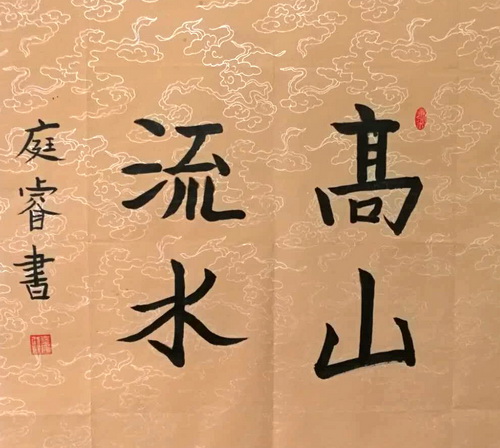 髙山
流水
庭睿書